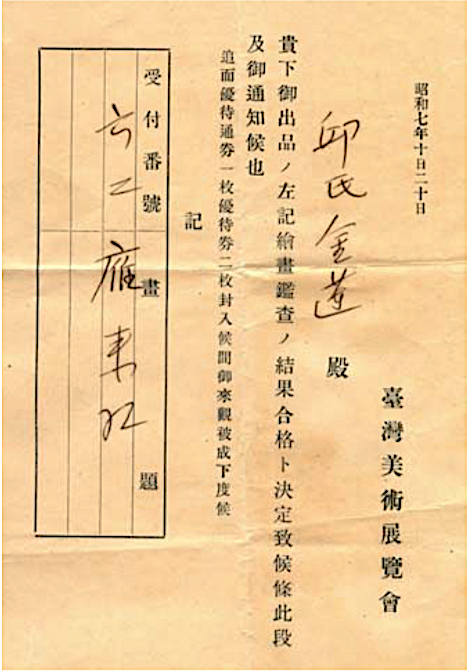 昭和七年十日二十日
臺灣美術展覽會
邱氏金蓮 殿
貴下御出品ノ左記繪畫鑑查ノ結果合格ト決定致候條此段
及御通知候也
追而優待通券一枚優待券二枚封入候間御來觀被成下度候
記
受付番號 畫題
六二 雁来紅